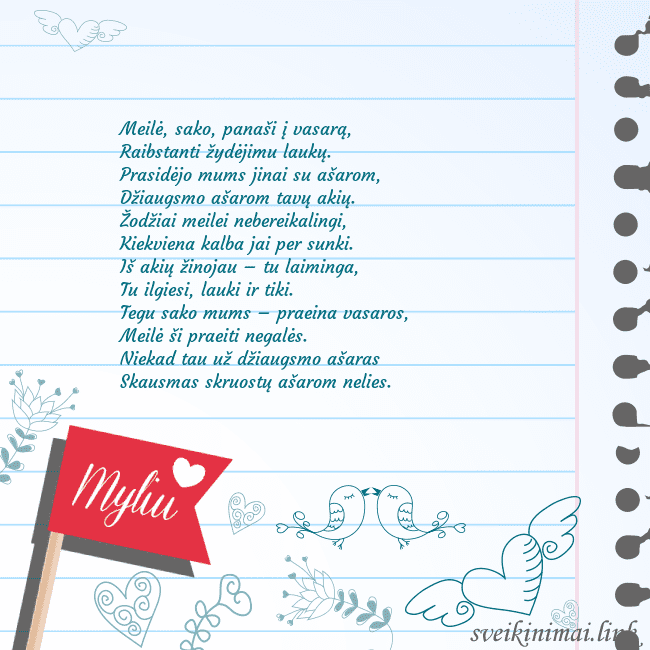 Meilė, sako, panaši į vasarą,
Raibstanti žydėjimu laukų.
Prasidėjo mums jinai su ašarom,
Džiaugsmo ašarom tavų akių.
Žodžiai meilei nebereikalingi,
Kiekviena kalba jai per sunki.
Iš akių žinojau – tu laiminga,
Tu ilgiesi, lauki ir tiki.
Tegu sako mums – praeina vasaros,
Meilė ši praeiti negalės.
Niekad tau už džiaugsmo ašaras
Skausmas skruostų ašarom nelies.
Myliu
sveikinimai.link